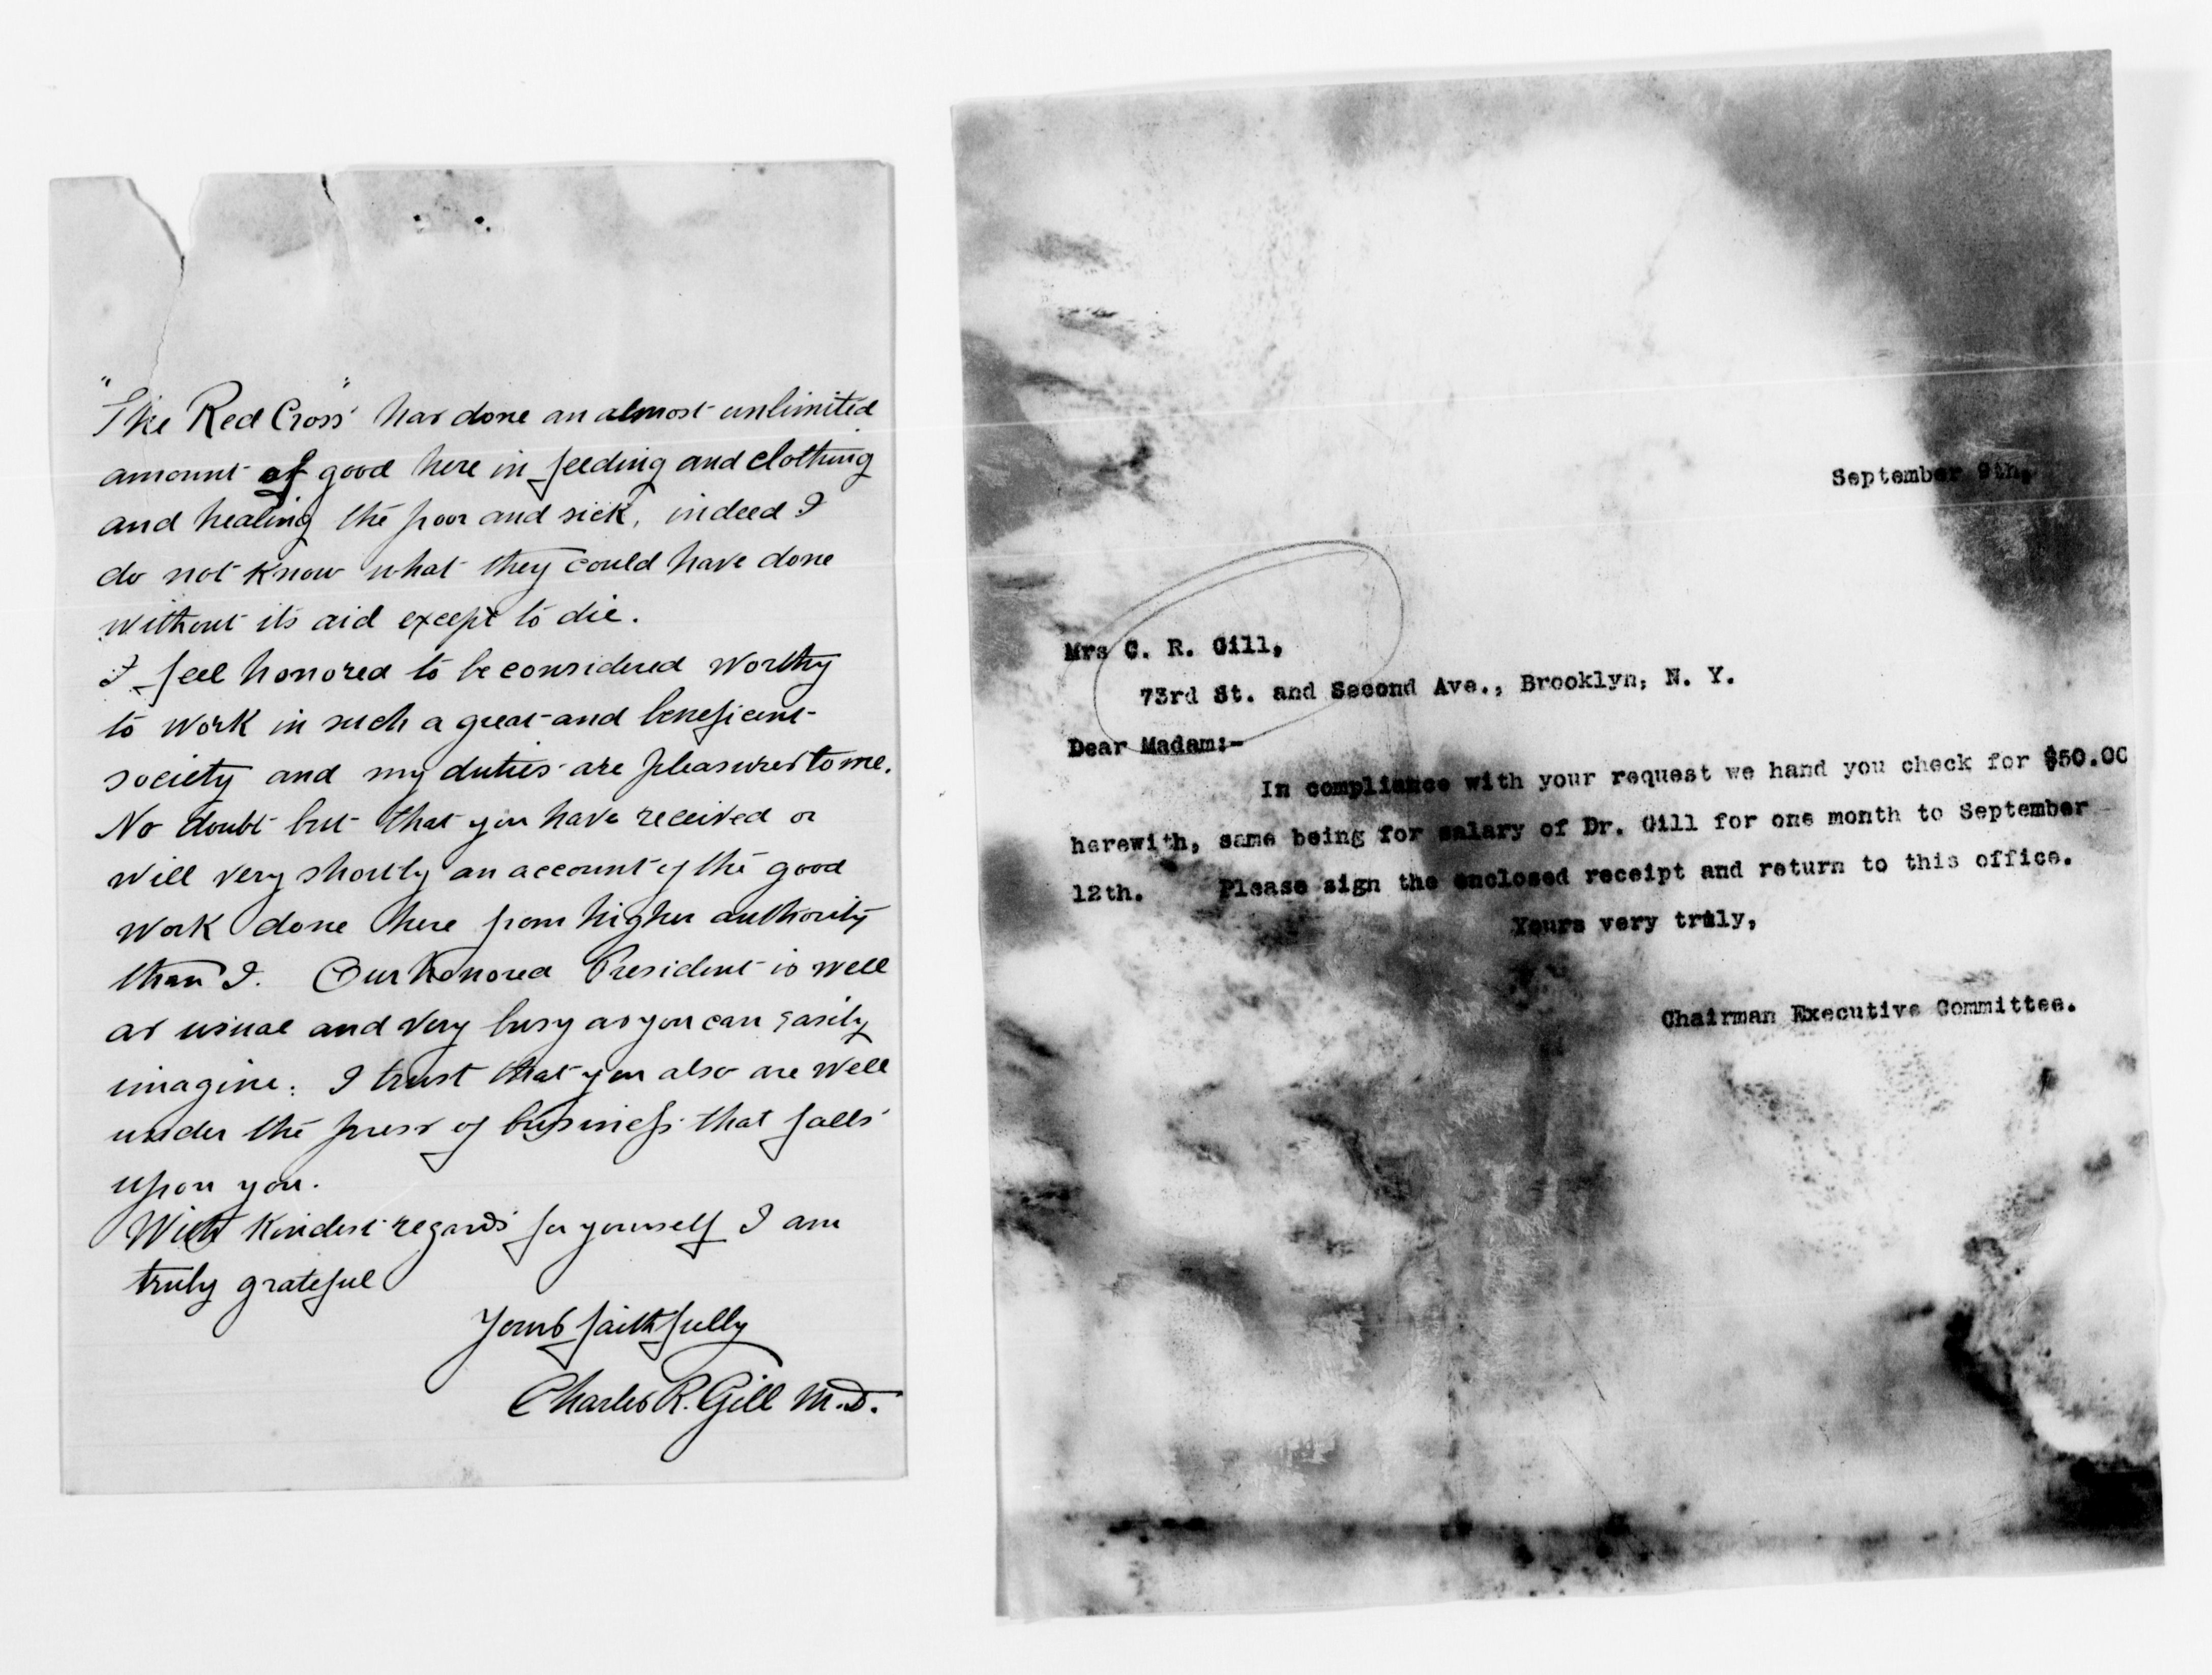 "The Red Cross" has done an almost unlimited
amount of good here in feeding and clothing
and healing the poor and sick, indeed I
do not know what they could have done
without its aid except to die.
I feel honored to be considered worthy
to work in such a great and beneficent
society and my duties are pleasures to me.
No doubt but that you have received or
will very shortly an account of the good
work done here from higher authority
than I. Our honored President is well
as usual and very busy as you can easily
imagine. I trust that you also are well
under the press of business that falls
upon you.
With kindest regards for yourself I am
truly grateful
Yours faithfully
Charles R. Gill M.D.
September 9th,
Mrs C. R. Gill,
73rd St. and Second Ave., Brooklyn, N. Y.
Dear Madam:-
In compliance with your request we hand you check for $50.00
herewith, same being for salary of Dr. Gill for one month to September
12th. Please sign the enclosed receipt and return to this office.
Yours very truly,
Chairman Executive Committee.